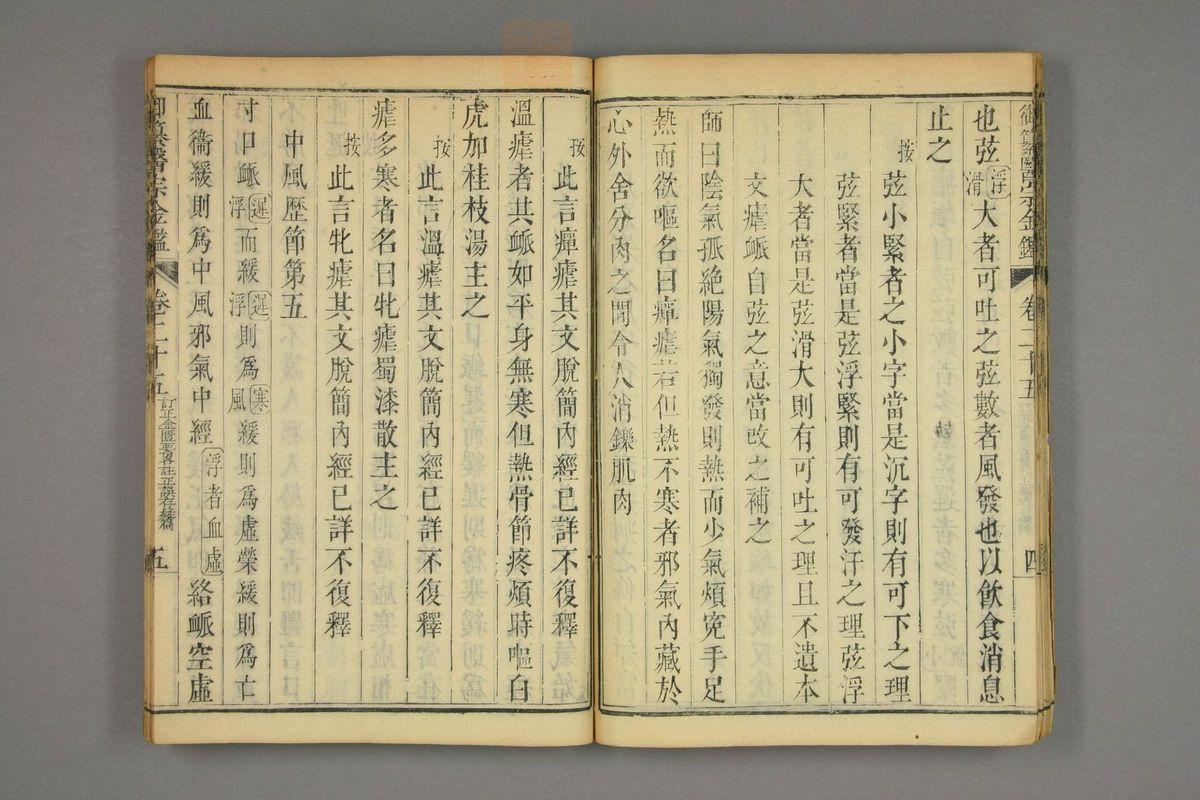 御纂醫宗金鑑 卷二十五 四
也弦浮滑大者可吐之弦數者風發也以飲食消息
止之
按弦小緊者之小字當是沉字則有可下之理
弦緊者當是弦浮緊則有可發汗之理弦浮
大者當是弦滑大則有可吐之理且不遺本
文瘧脈自弦之意當改之補之
師曰陰氣孤絶陽氣獨發則熱而少氣煩寃手足
熱而欲嘔名曰癉瘧若但熱不寒者邪氣內藏於
心外舍分肉之間令人消鑠肌肉
按此言癉瘧其文脫簡內經已詳不復釋
溫瘧者其脈如平身無寒但熱骨節疼煩時嘔白
虎加桂枝湯主之
按此言溫瘧其文脫簡內經已詳不復釋
瘧多寒者名曰牝瘧蜀漆散主之
按此言牝瘧其文脫簡內經已詳不復釋
中風歷節第五
寸口脈遲浮而緩遲浮則爲寒風緩則爲虛榮緩則爲亡
血衞緩則爲中風邪氣中經浮者血虛絡脈空虛
御纂醫宗金鑑 卷二十五 訂正金匱要略註正誤存疑篇 五